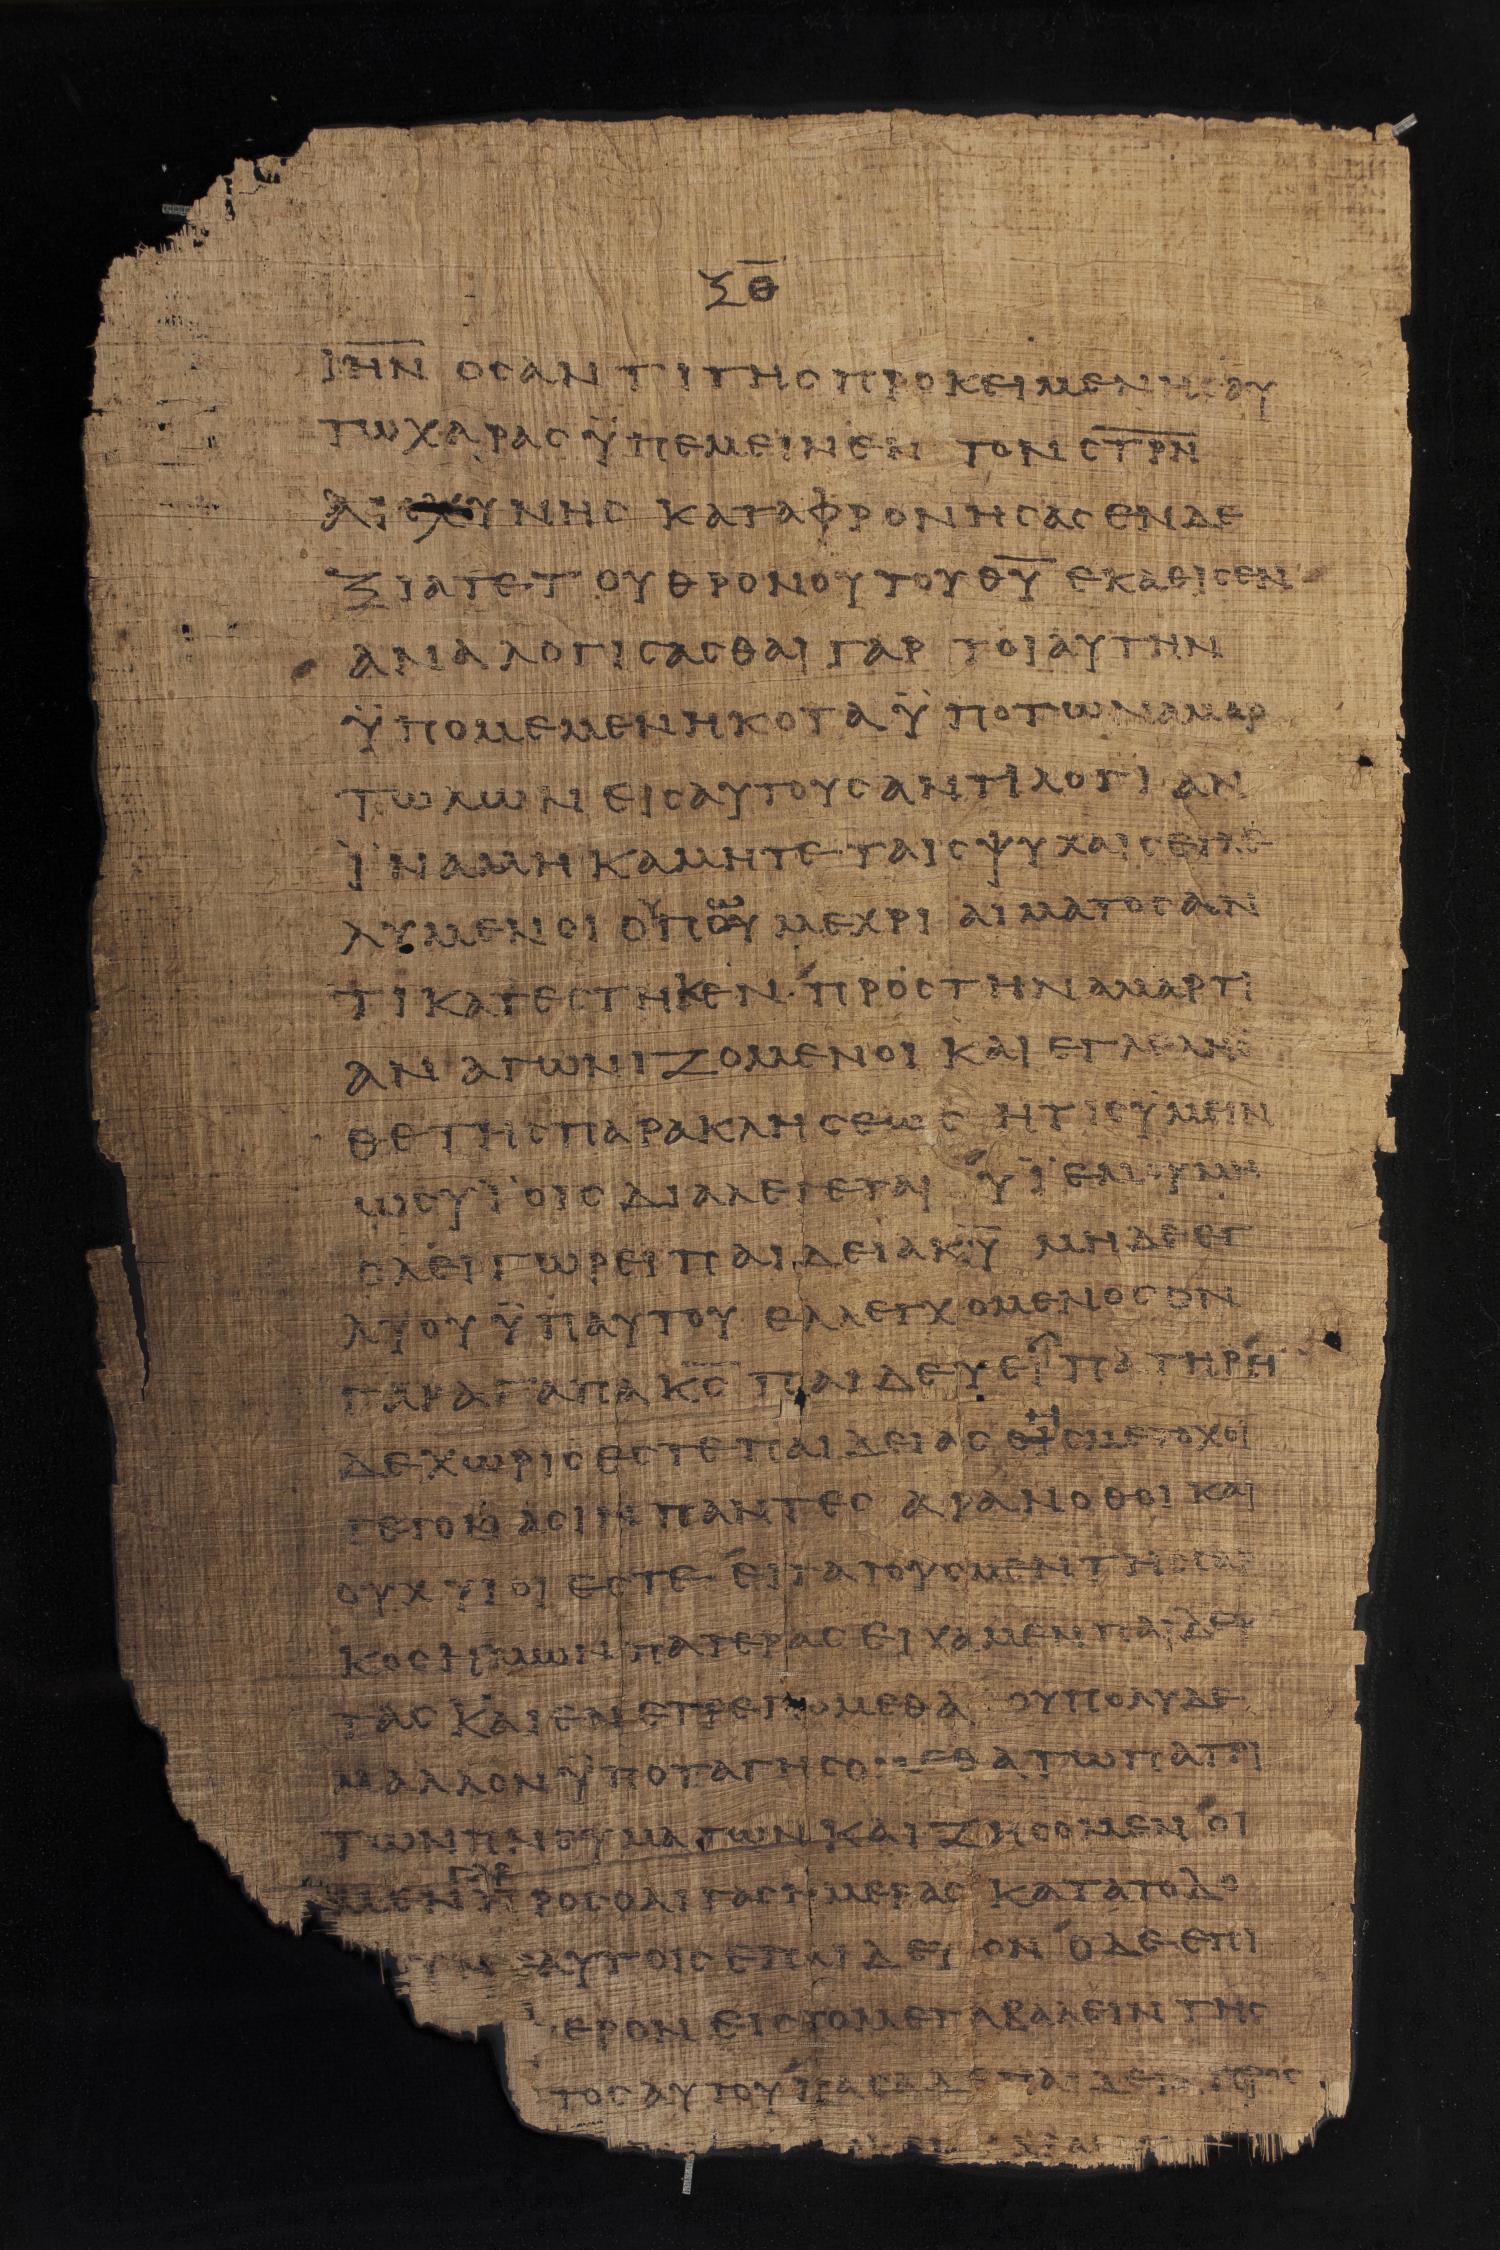 ξθ
ιην ος αντι της προκειμενης αυ
τω χαρας ϋπεμεινεν τον στρν
αισχυνης καταφρονησας εν δε
ξια τε του θρονου του θυ εκαθισεν
αναλογισασθαι γαρ τοιαυτην
ϋπομεμενηκοτα ϋπο των αμαρ
τωλων εις αυτους αντιλογιαν
ϊνα μη καμητε ταις ψυχαις εγλε
λυμενοι ουπω μεχρι αιματος αν
τικατεστηκεν προς την αμαρτι
αν αγωνιζομενοι και εγλελησ
θε της παρακλησεως ητις ϋμειν
ως υϊοις διαλεγεται υϊε μου μη
ολειγωρει παιδεια κυ μηδε εγ
λυου ϋπ αυτου ελλεγχομενος ον
γαρ αγαπα κς παιδευει πατηρ ει
δε χωρις εστε παιδειας ης μετοχοι
γεγονασιν παντες αρα νοθοι και
ουχ υιοι εστε ειτα τους μεν της σαρ
κος ημων πατερας ειχαμεν παιδευ
τας και ενετρεπομεθα ου πολυ δε
μαλλον ϋποταγησομεθα τω πατρι
των πνευματων και ζησομεν οι
μεν γαρ προς ολιγας ημερας κατα το δο
κουν αυτοις επαιδευον ο δε επι
φερον εις το μεταλαβειν της
τος αυτου πασα δε παιδεια προς